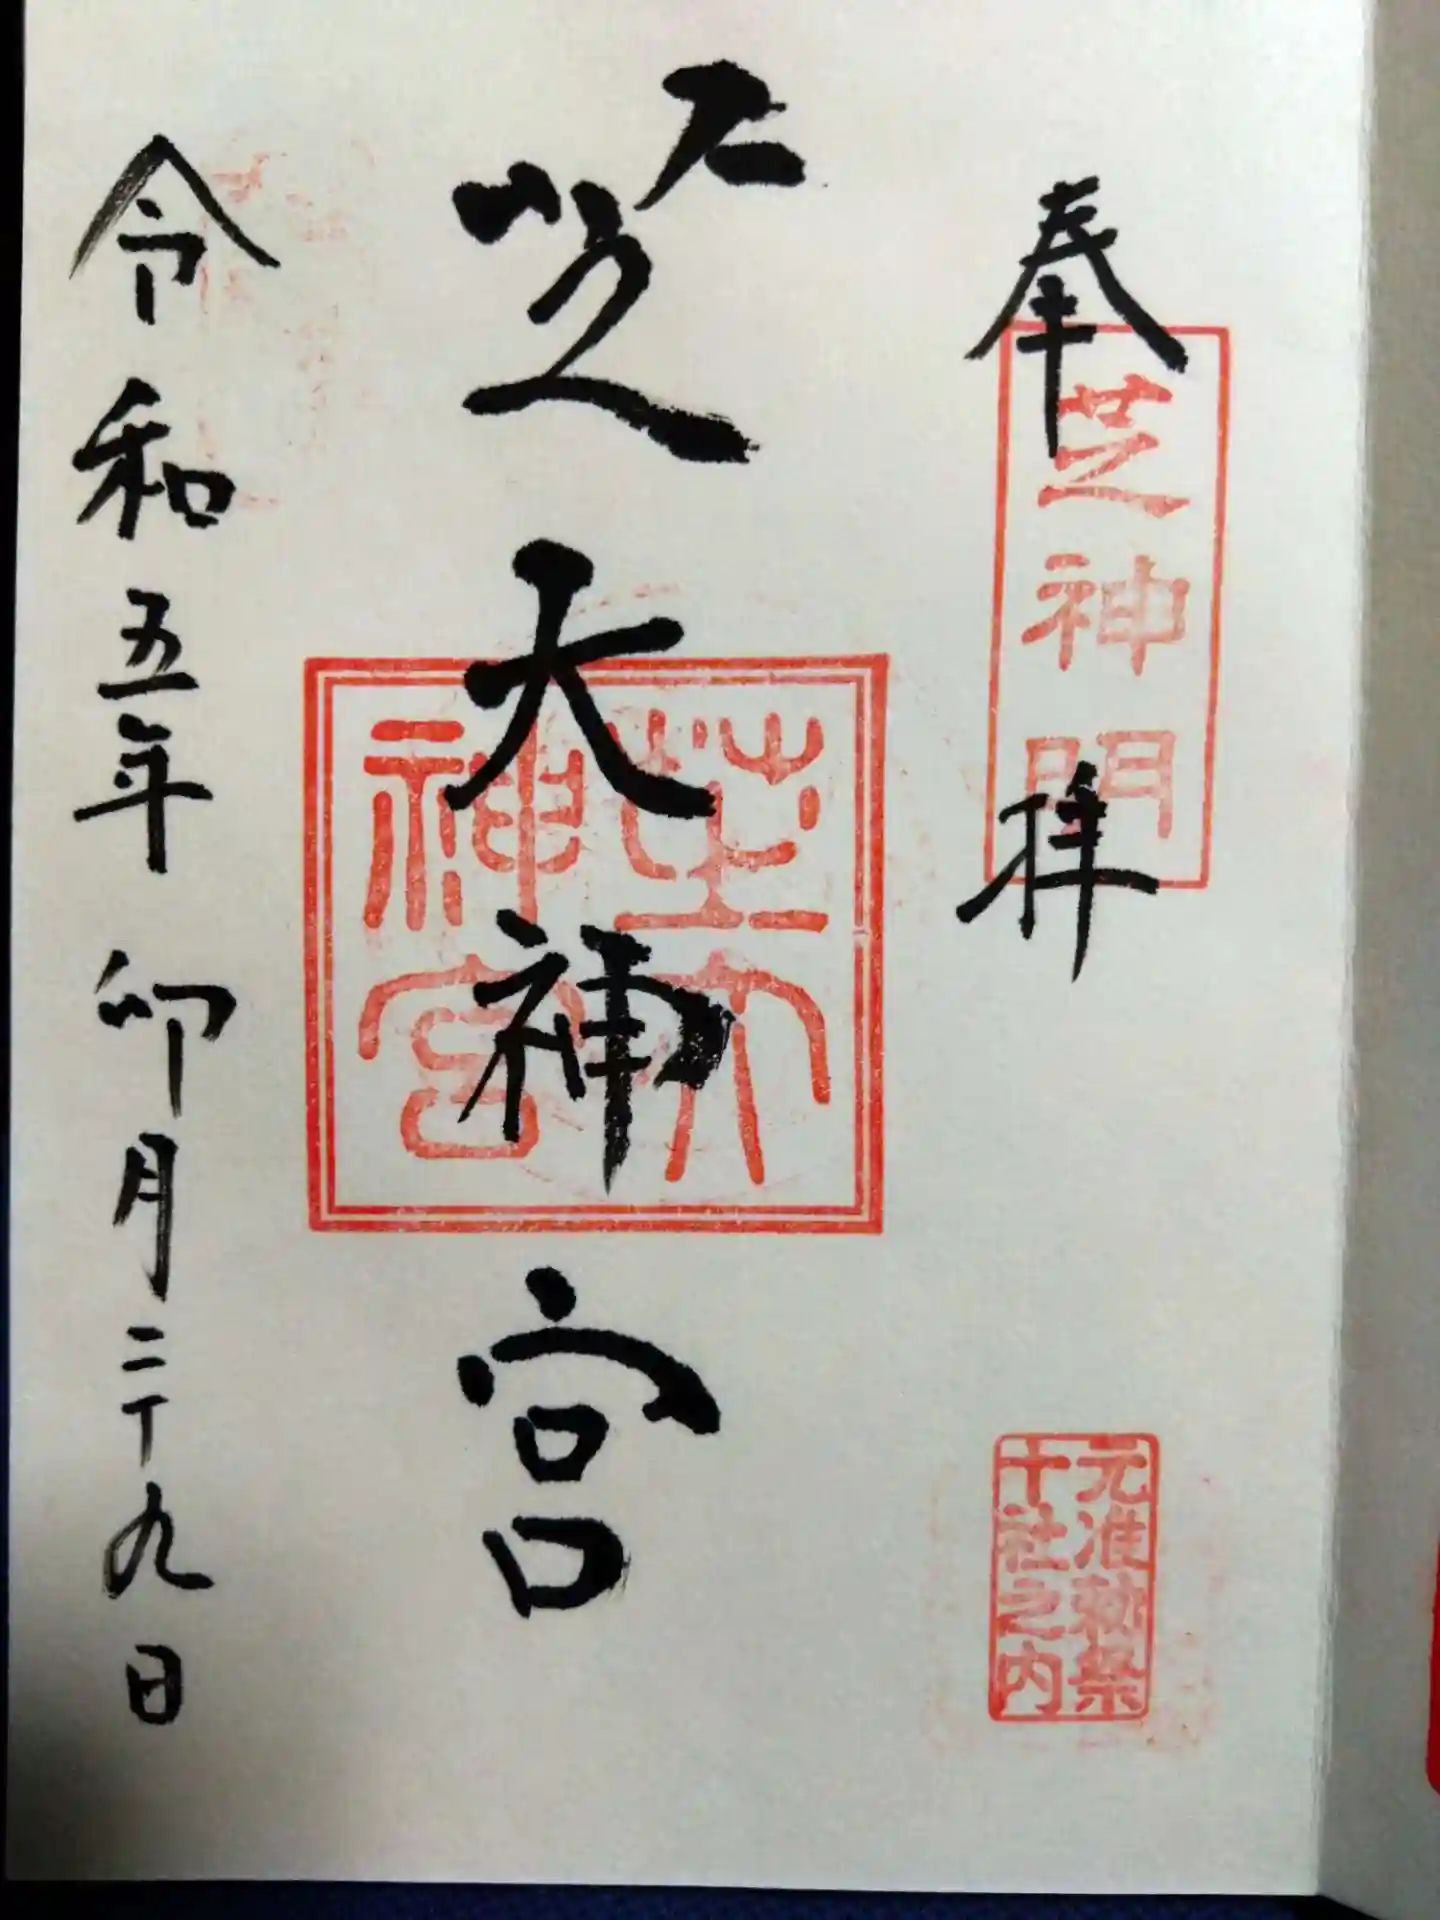 奉拝
芝神明
元准勅祭
十社之内
芝大神宮
芝大
神宮
令和五年 卯月二十九日